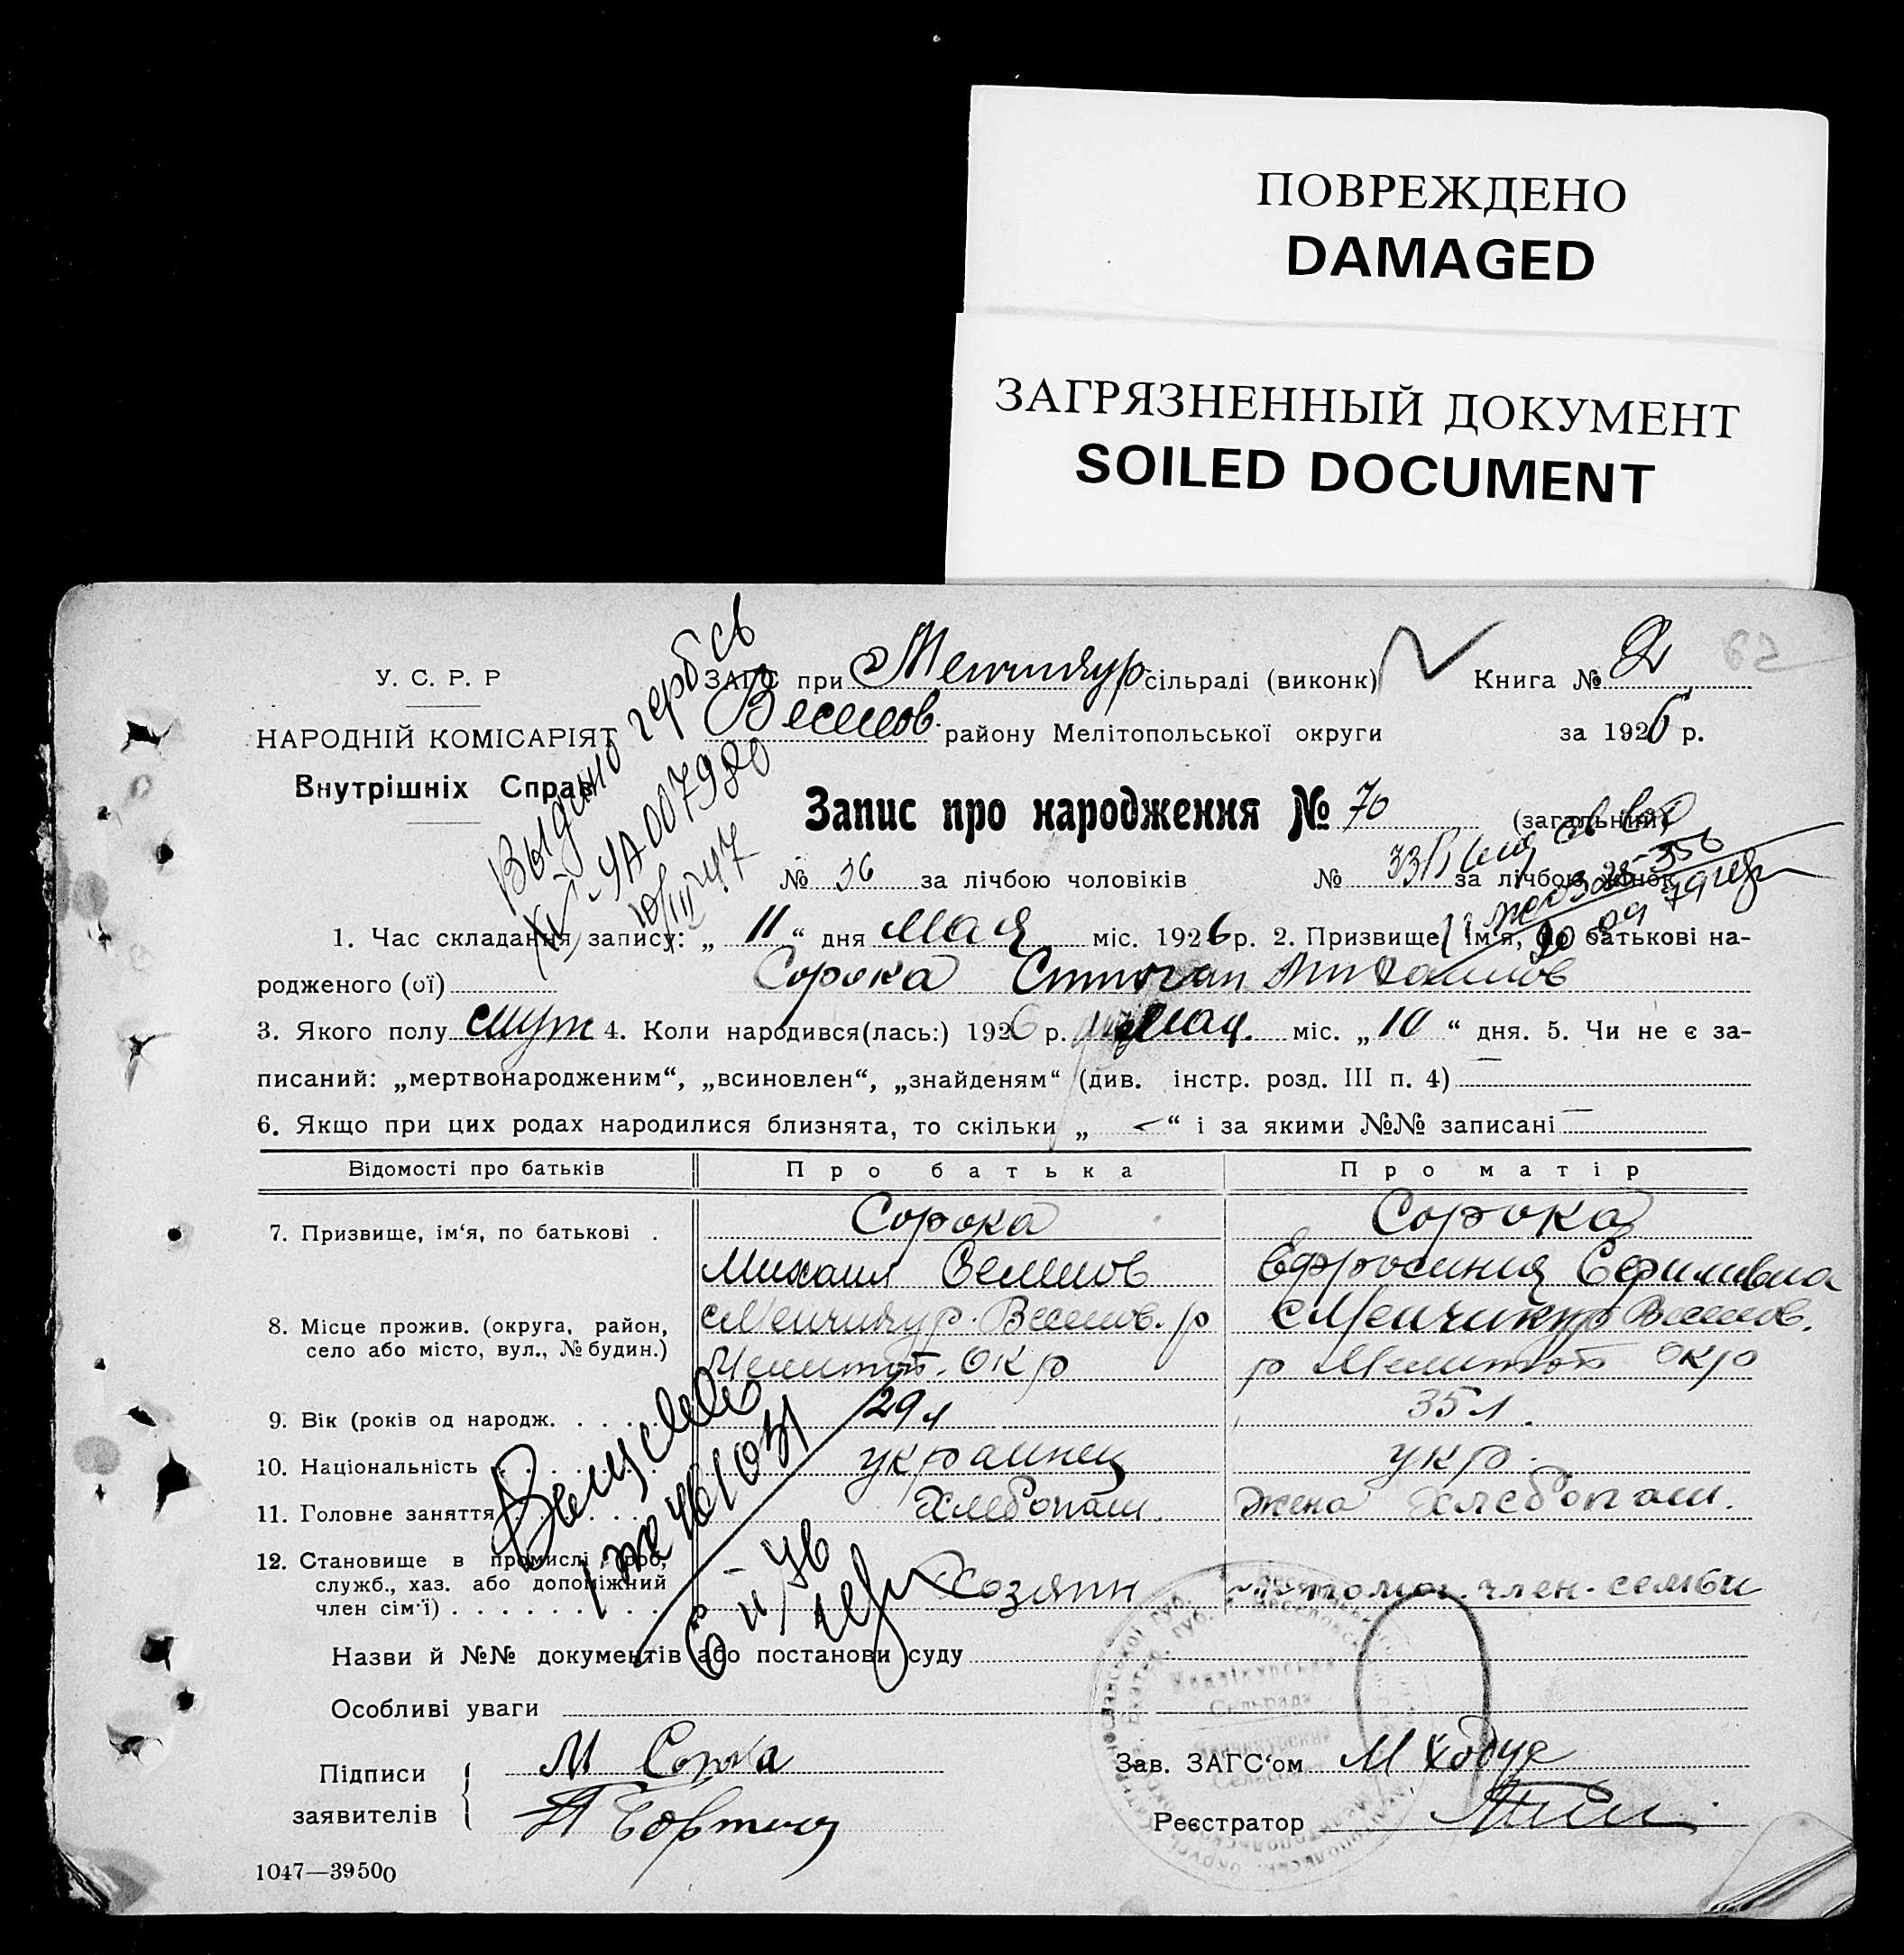 ПОВРЕЖДЕНО
DAMAGED
ЗАГРЯЗНЕННЫЙ ДОКУМЕНТ
SOILED DOCUMENT
62
У. С. Р. Р
НАРОДНІЙ КОМІСАРІЯТ
Внутрішніх Справ
Выдано герб св
ЯА 007980
ЗАГС при Менчикур сільраді (виконк) Книга № 2
Веселов. району Мелітопольської округи за 1926 р.
Запис про народження № 70 (загальний)
№ 36 за лічбою чоловіків № за лічбою жінок
1. Час складання запису: „ 11 “ дня мая міс. 1926 р. 2. Призвище, ім'я, по батькові на-
родженого (ої) Сорока Степан Михаилов
3. Якого полу муж 4. Коли народився(лась:) 1926 р. мая. міс. „ 10 “ дня. 5. Чи не є за-
писаний: „мертвонародженим“, „всиновлен“, „знайденям“ (див. інстр. розд. III п. 4) —
6. Якщо при цих родах народилися близнята, то скільки „ — “ і за якими №№ записані —
Відомості про батьків Про батька Про матір
7. Призвище, ім‘я, по батькові . Сорока Сорока
Михаил Семенов Ефросиния Ефимовна
8. Місце прожив. (округа, район, с Менчикур. Веселов. р с Менчикур Веселов.
село або місто, вул., № будин.) Мелитоп. окр р Мелитоп окр
9. Вік (років од народж. . . . . 29 л 35 л.
10. Національність . . . . . украинец укр.
11. Головне заняття . . . . . Хлебопаш. жена хлебопаш.
12. Становище в промислі (роб,
служб., хаз. або допоміжний Хозяин помог. член. семьи
член сім‘ї) . . . . . . . . .
Назви й №№ документів або постанови суду
Особливі уваги
Підписи М Сорока Зав. ЗАГС‘ом
заявителів Реєстратор
1047—39500